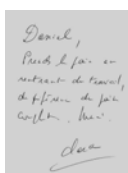 Daniel,
Prends le pain en
rentrant du travail,
de préférence du pain
complet. Merci.